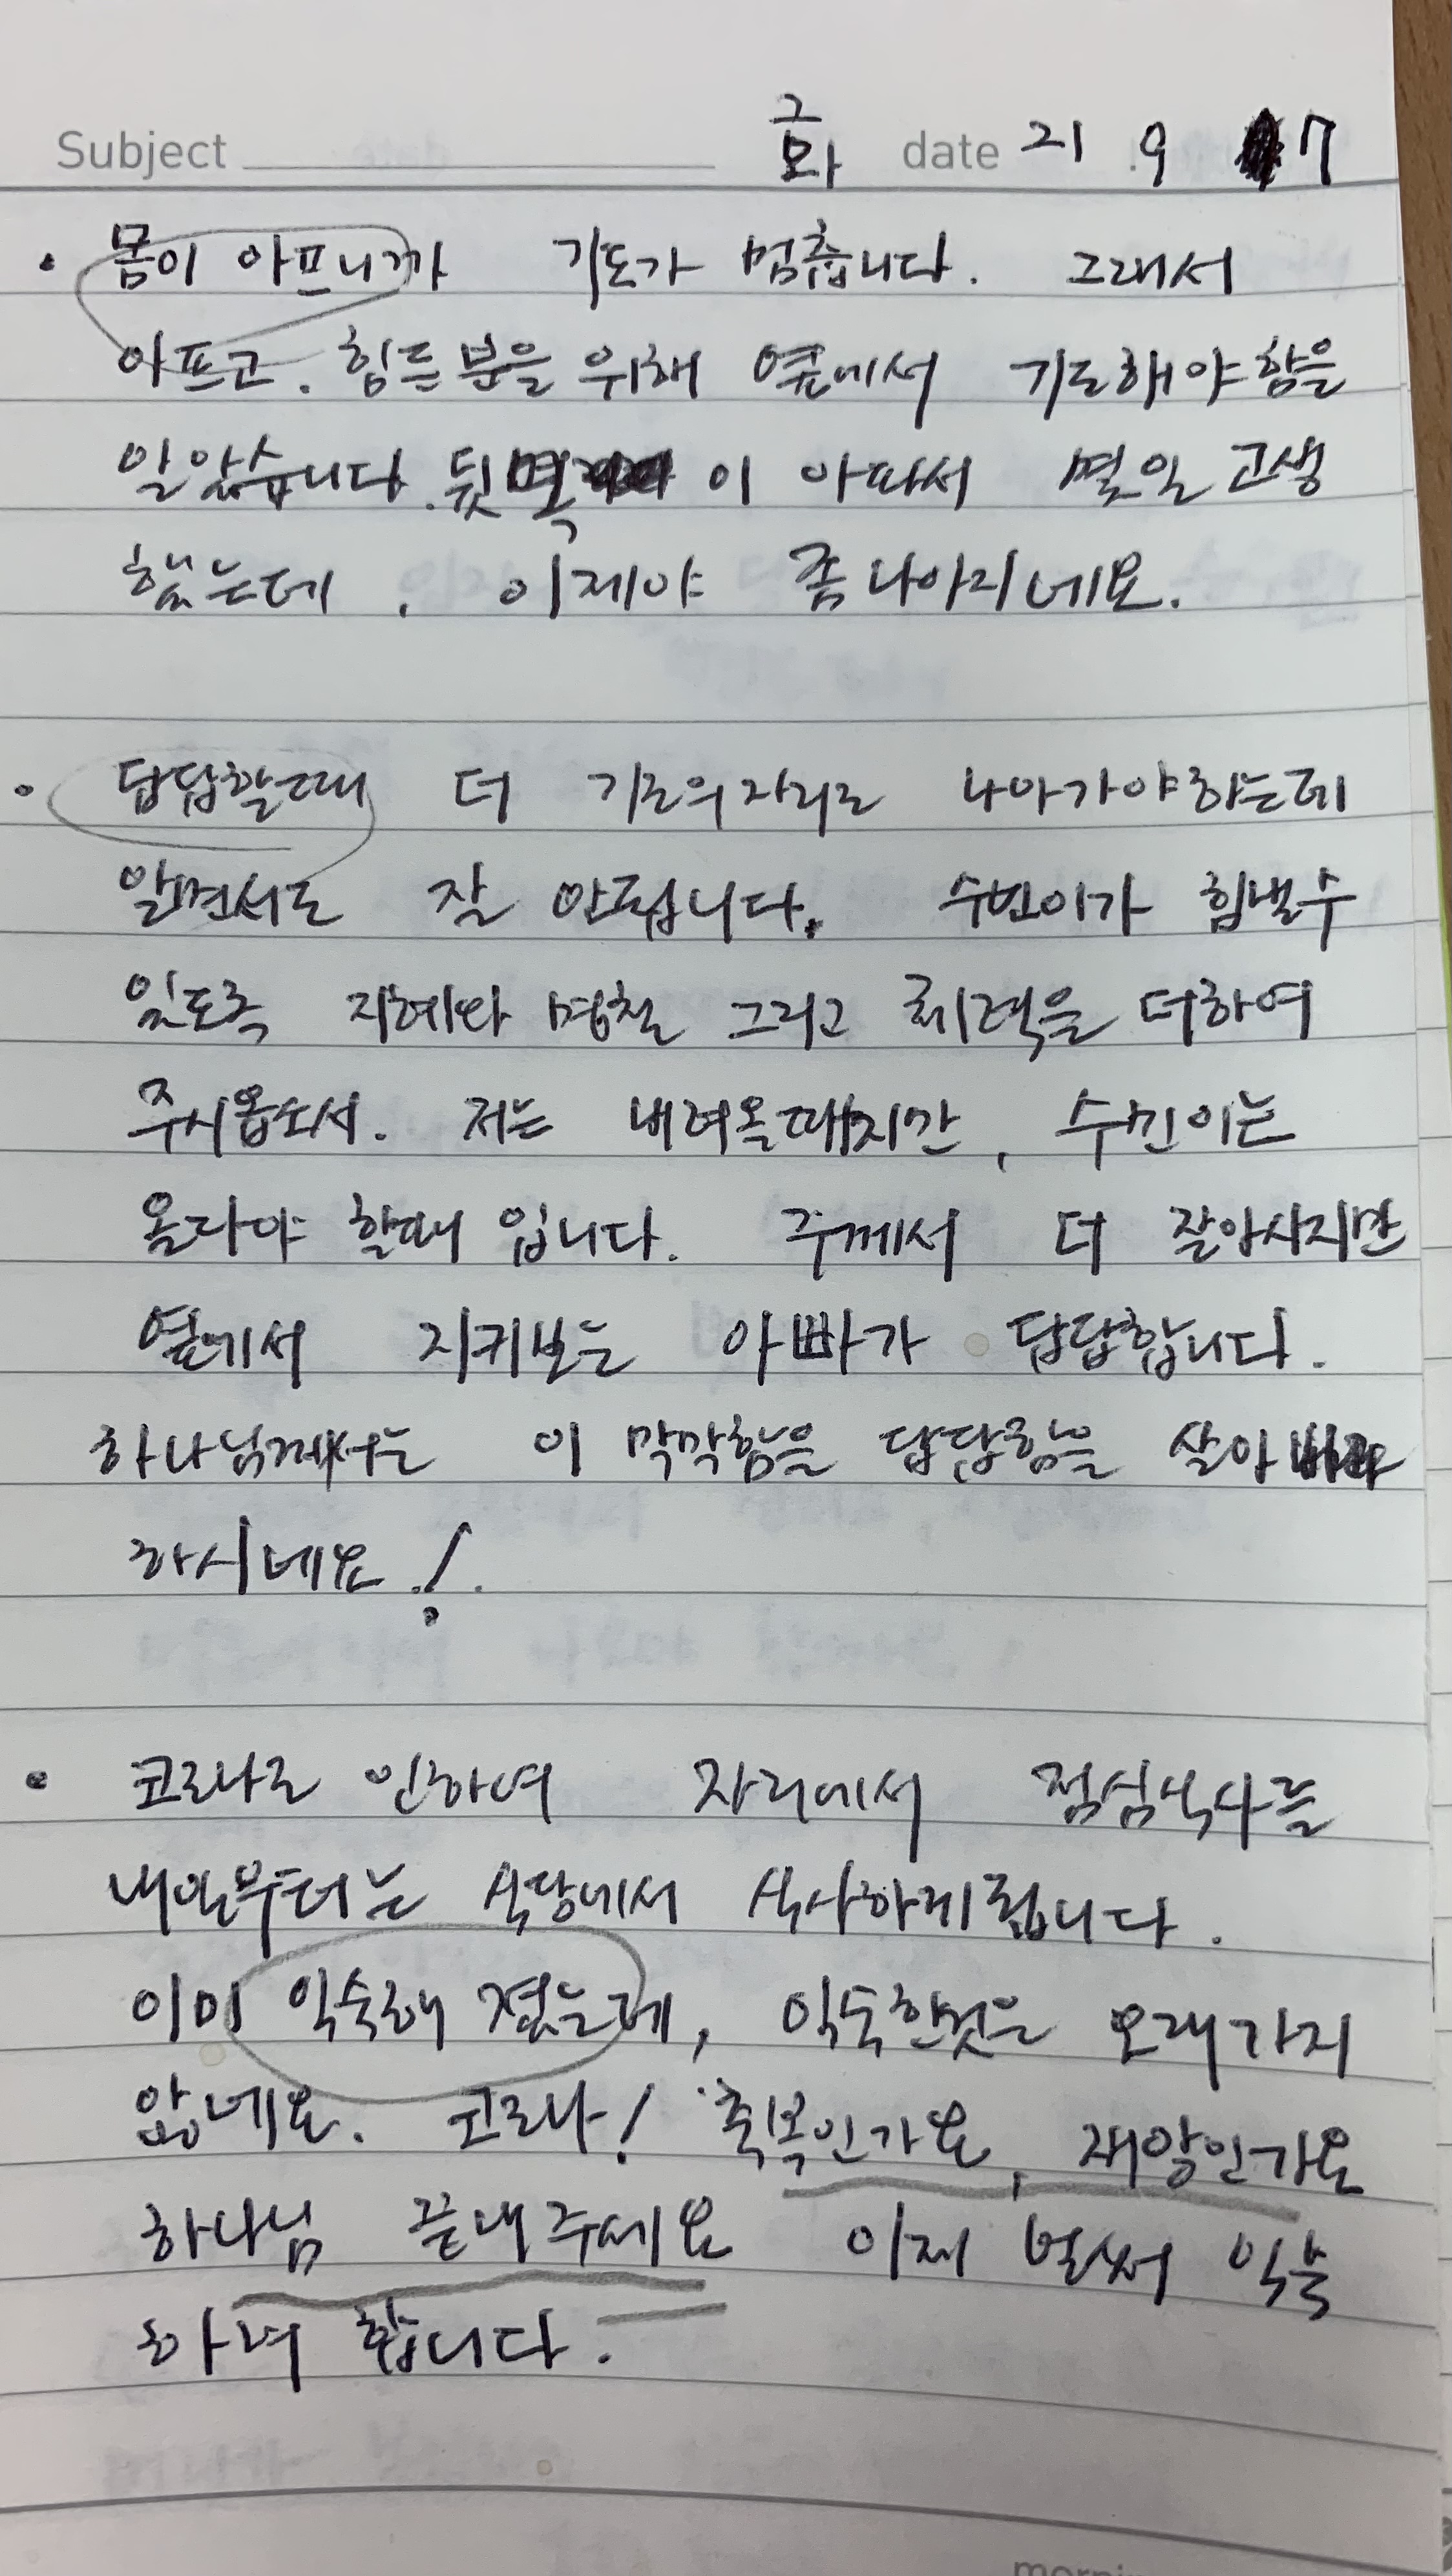 Subject 화 date 21 9 7
• 몸이 아프니까 기도가 멈춥니다. 그래서
아프고. 힘든분을 위해 옆에서 기도해야함을
알았습니다. 뒷목이 아파서 몇일 고생
했는데, 이제야 좀 나아지네요.
• 답답할때 더 기도의자리로 나아가야하는데
알면서도 잘 안됩니다. 수민이가 힘낼수
있도록 지혜와 명철 그리고 체력을 더하여
주시옵소서. 저는 내려올때지만, 수민이는
올라야 할때 입니다. 주께서 더 잘아시지만
옆에서 지켜보는 아빠가 답답합니다.
하나님께서는 이 막막함을 답답함을 살아
하시네요!
• 코로나로 인하여 자리에서 점심식사를
내일부터는 식당에서 식사하게됩니다.
이미 익숙해 졌는데, 익숙한것은 오래가지
않네요. 코로나! 축복인가요, 재앙인가요
하나님 끝내주세요 이제 벌써 익숙
하려 합니다.